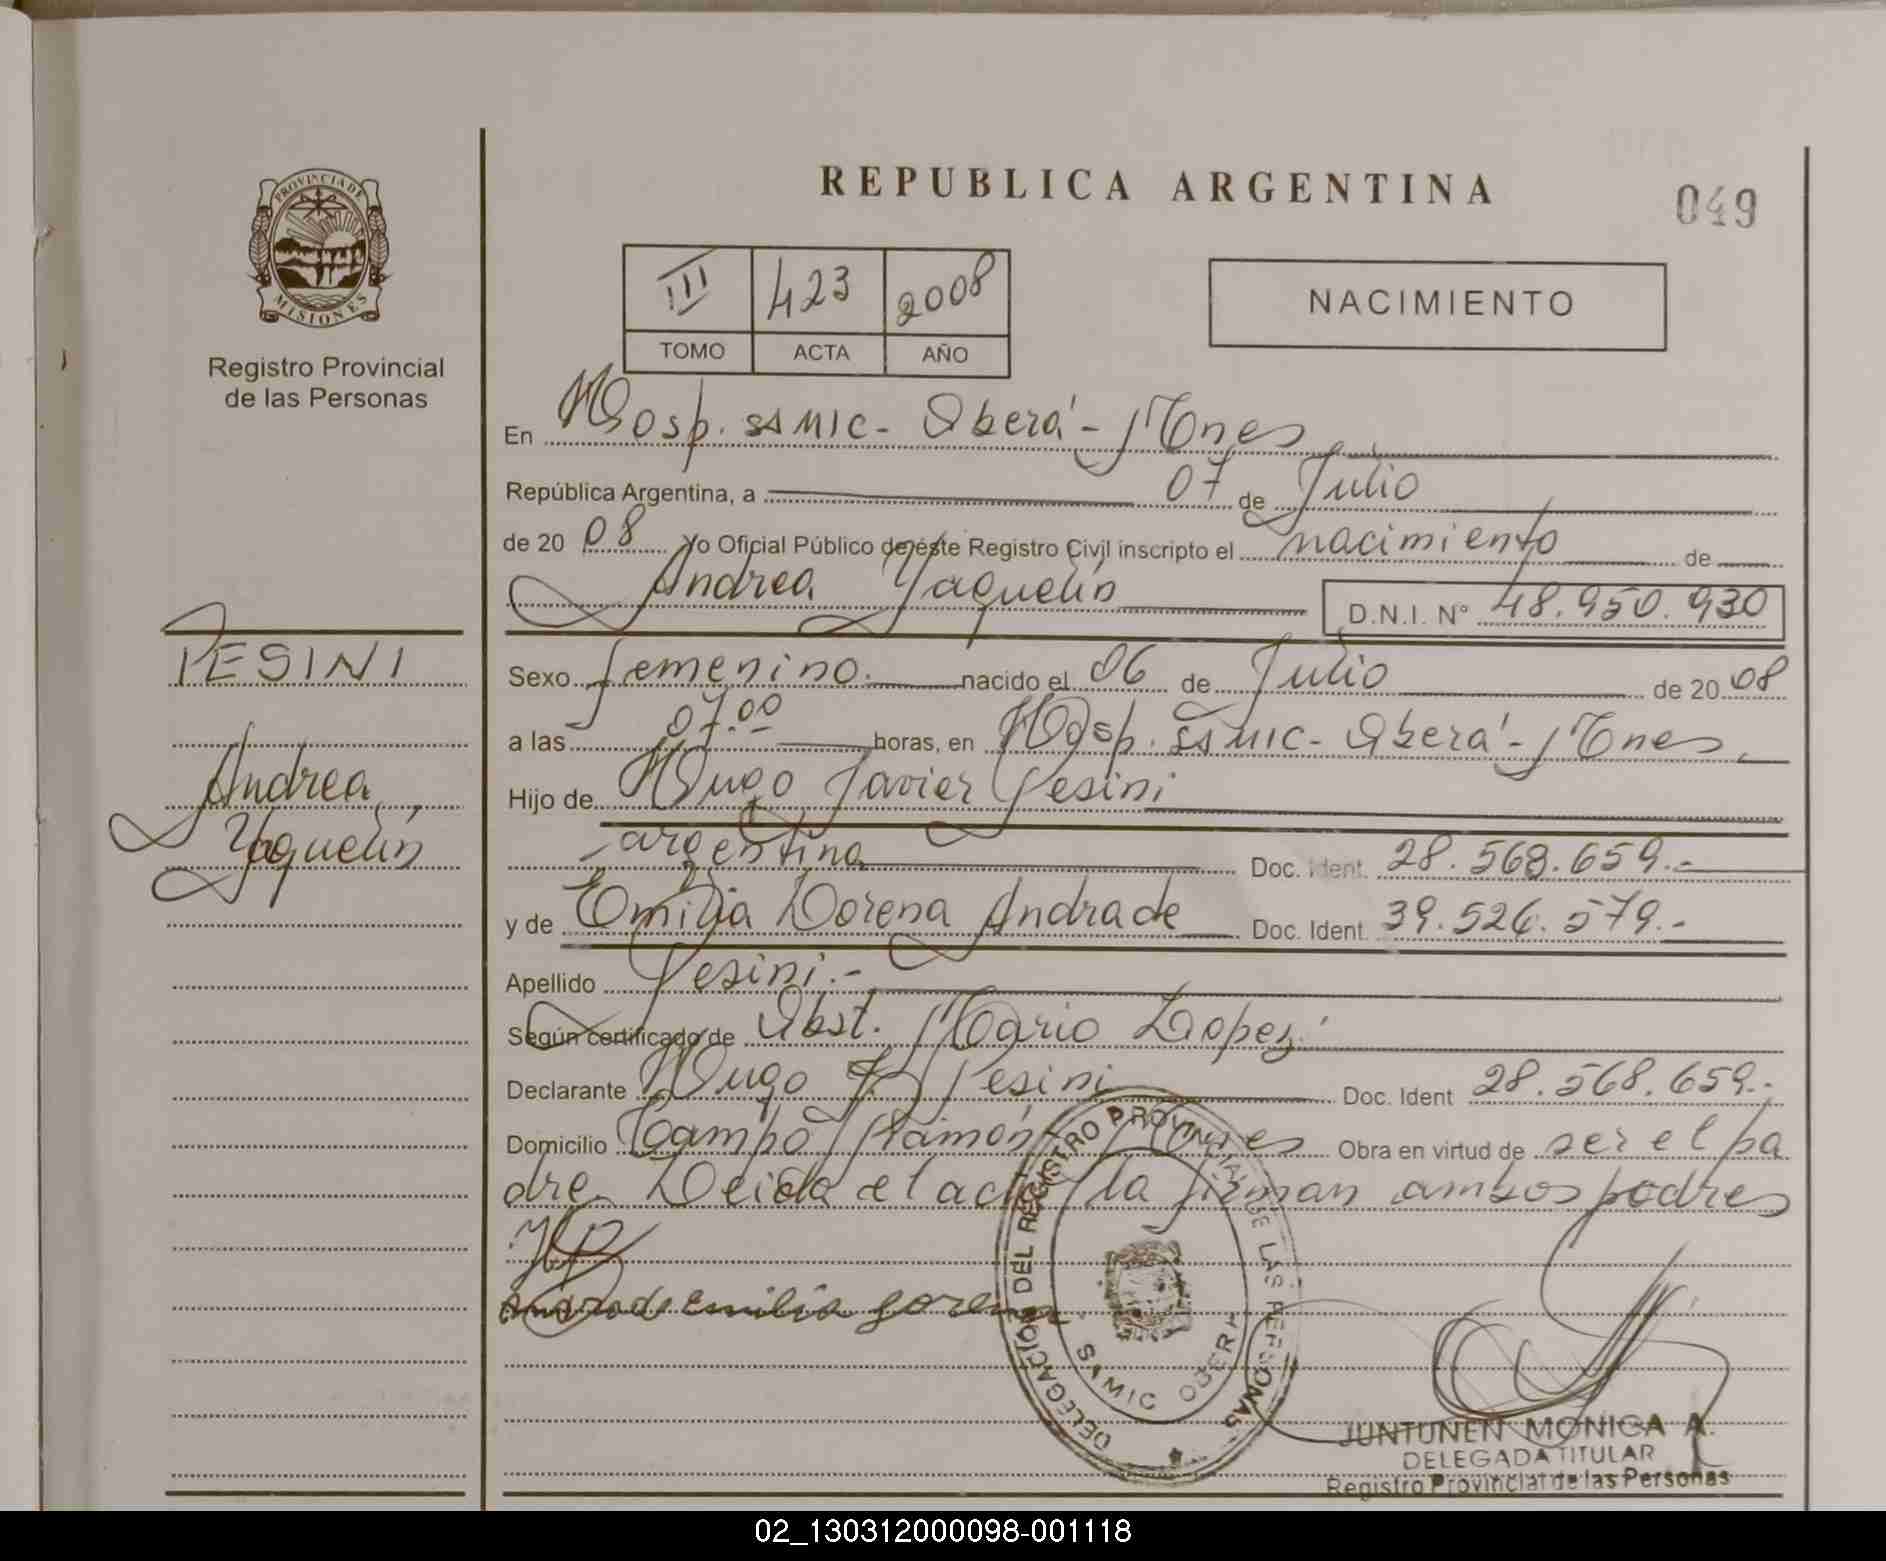 REPUBLICA ARGENTINA
049
PROVINCIA DE
MISIONES
Registro Provincial
de las Personas
III 423 2008
TOMO ACTA AÑO
NACIMIENTO
En Hosp. SAMIC - Oberá - Mnes
República Argentina, a 07 de Julio
de 2008 Yo Oficial Público de éste Registro Civil inscripto el nacimiento de
Andrea Yaquelin D.N.I. N° 48.950.930
PESINI
Andrea
Yaquelin
Sexo femenino. nacido el 06 de Julio de 2008
a las 07.00 horas, en Hosp. SAMIC - Oberá - Mnes
Hijo de Hugo Javier Pesini
argentina Doc. Ident. 28.568.659.-
y de Emilia Lorena Andrade Doc. Ident. 39.526.579.-
Apellido Pesini.-
Según certificado de Obst. Mario Lopez
Declarante Hugo J. Pesini Doc. Ident 28.568.659.-
Domicilio Campo Ramón Mnes Obra en virtud de ser el pa
dre. Leida el acta la firman ambos padres
Andrade Emilia Lorena
DELEGACIÓN DEL REGISTRO PROVINCIAL DE LAS PERSONAS
SAMIC OBERA
JUNTUNEN MONICA A.
DELEGADA TITULAR
Registro Provincial de las Personas
02_130312000098-001118